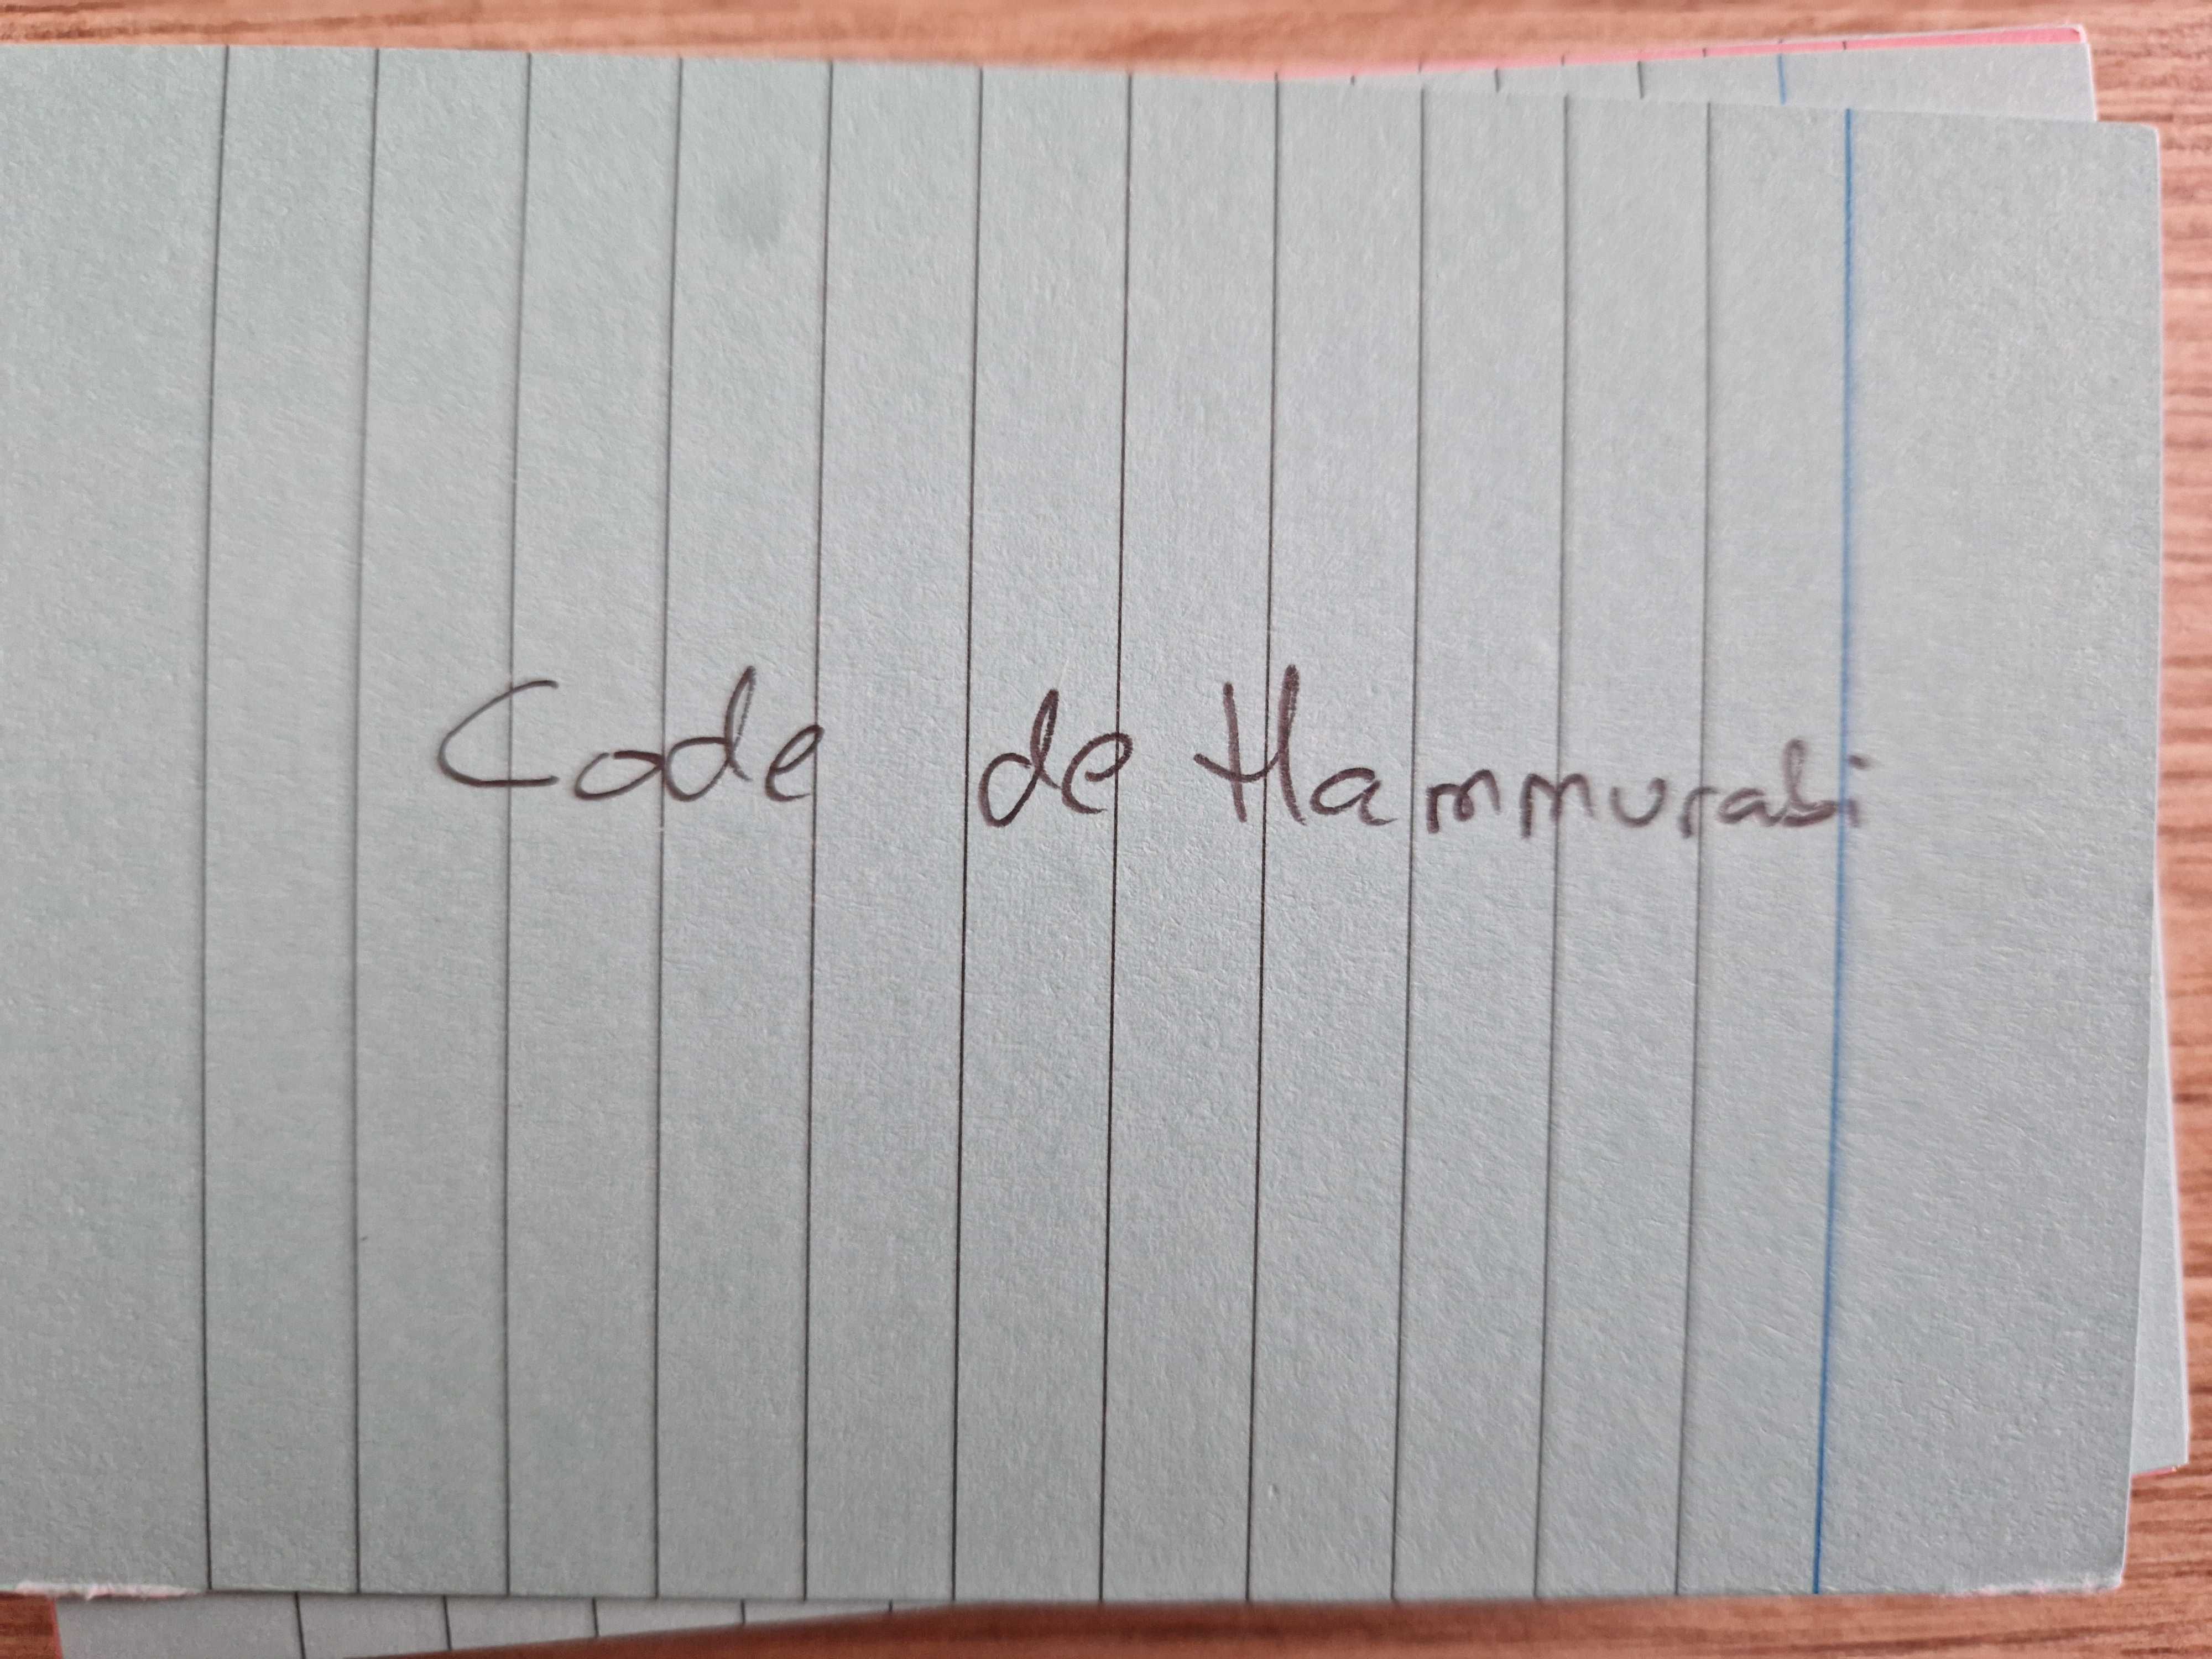 Code de Hammurabi